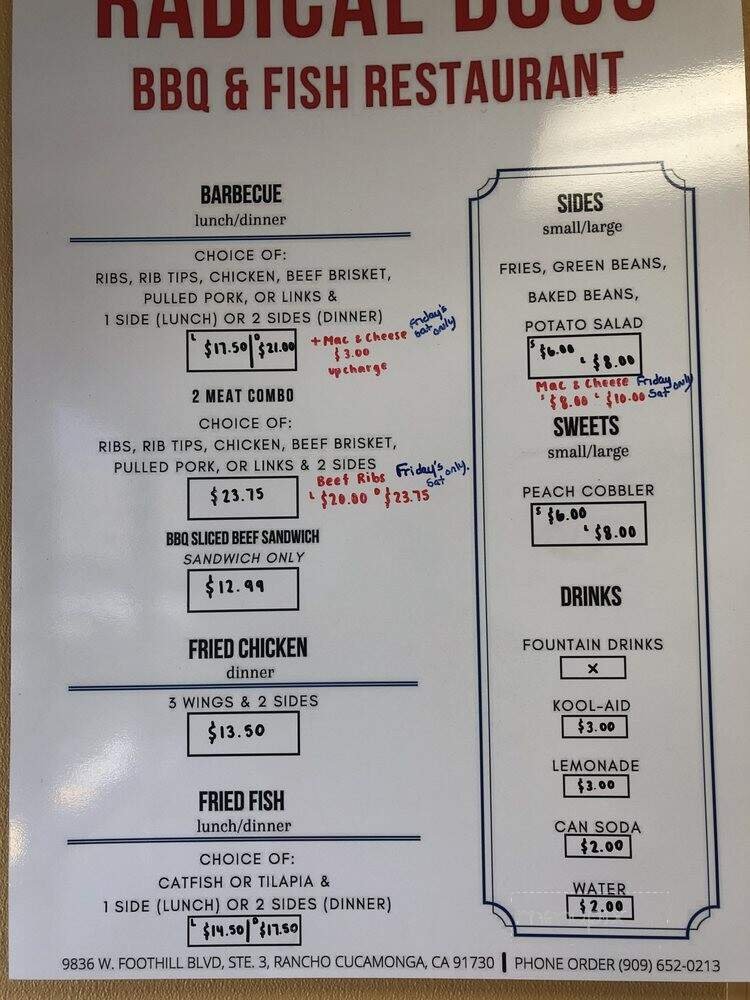 RADICAL DOGS
BBQ & FISH RESTAURANT
BARBECUE
lunch/dinner
CHOICE OF:
RIBS, RIB TIPS, CHICKEN, BEEF BRISKET,
PULLED PORK, OR LINKS &
1 SIDE (LUNCH) OR 2 SIDES (DINNER)
L $17.50 | D $21.00
+ Mac & Cheese
$3.00
upcharge
Friday's
Sat only
2 MEAT COMBO
CHOICE OF:
RIBS, RIB TIPS, CHICKEN, BEEF BRISKET,
PULLED PORK, OR LINKS & 2 SIDES
$23.75
Beef Ribs
L $20.00 D $23.75
Friday's
Sat only.
BBQ SLICED BEEF SANDWICH
SANDWICH ONLY
$12.99
FRIED CHICKEN
dinner
3 WINGS & 2 SIDES
$13.50
FRIED FISH
lunch/dinner
CHOICE OF:
CATFISH OR TILAPIA &
1 SIDE (LUNCH) OR 2 SIDES (DINNER)
L $14.50 | D $17.50
SIDES
small/large
FRIES, GREEN BEANS,
BAKED BEANS,
POTATO SALAD
S $6.00
L $8.00
Mac & Cheese
S $8.00 L $10.00
Friday
Sat only
SWEETS
small/large
PEACH COBBLER
S $6.00
L $8.00
DRINKS
FOUNTAIN DRINKS
X
KOOL-AID
$3.00
LEMONADE
$3.00
CAN SODA
$2.00
WATER
$2.00
9836 W. FOOTHILL BLVD, STE. 3, RANCHO CUCAMONGA, CA 91730 | PHONE ORDER (909) 652-0213